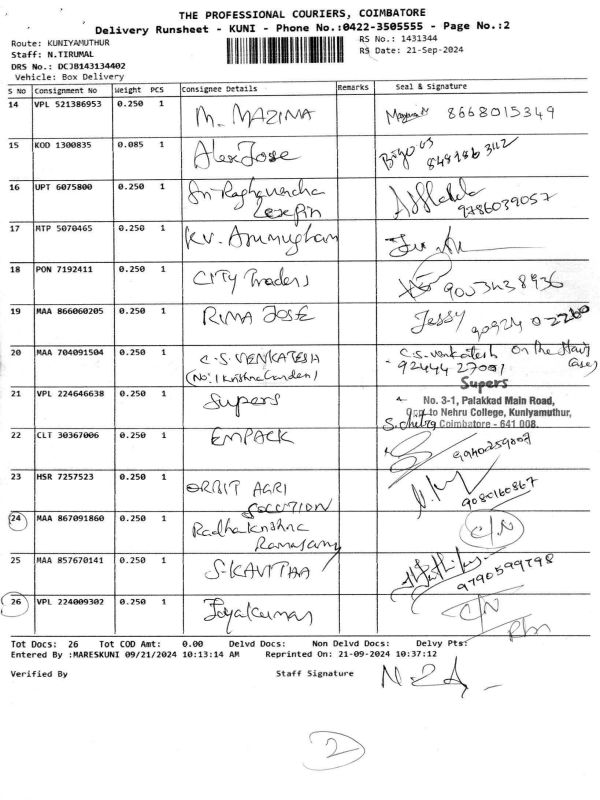 THE PROFESSIONAL COURIERS, COIMBATORE
Delivery Runsheet - KUNI - Phone No.:0422-3505555 - Page No.:2
Route: KUNIYAMUTHUR
RS No.: 1431344
Staff: N.TIRUMAL
RS Date: 21-Sep-2024
DRS No.: DCJB143134402
Vehicle: Box Delivery
S No Consignment No Weight PCS Consignee Details Remarks Seal & Signature
14 VPL 521386953 0.250 1 M. MAZIMA 8668015349
15 KOD 1300835 0.085 1 Alex Jose
16 UPT 6075800 0.250 1 Sri Raghavendra
9786039057
17 MTP 5070465 0.250 1 KV. Arumugham
18 PON 7192411 0.250 1 CITY Traders 9003438936
19 MAA 866060205 0.250 1 RIMA JOSE Jessy 90924 02260
20 MAA 704091504 0.250 1 C.S. VENKATESH C.S. Venkatesh on the stair
(No: 1 Krishna Garden) 92444 27001 case)
Supers
21 VPL 224646638 0.250 1 Supers No. 3-1, Palakkad Main Road,
Opp to Nehru College, Kuniyamuthur,
Coimbatore - 641 008.
22 CLT 30367006 0.250 1 EMPACK 9940259007
23 HSR 7257523 0.250 1 ORBIT AGRI
SOLUTION 9080160867
24 MAA 867091860 0.250 1 Radhakrishna C/N
Ramasamy
25 MAA 857670141 0.250 1 S. KAVITHA 9790599798
26 VPL 224009302 0.250 1 Jayakumar C/N
Tot Docs: 26 Tot COD Amt: 0.00 Delvd Docs: Non Delvd Docs: Delvy Pts:
Entered By :MARESKUNI 09/21/2024 10:13:14 AM Reprinted On: 21-09-2024 10:37:12
Verified By Staff Signature
2